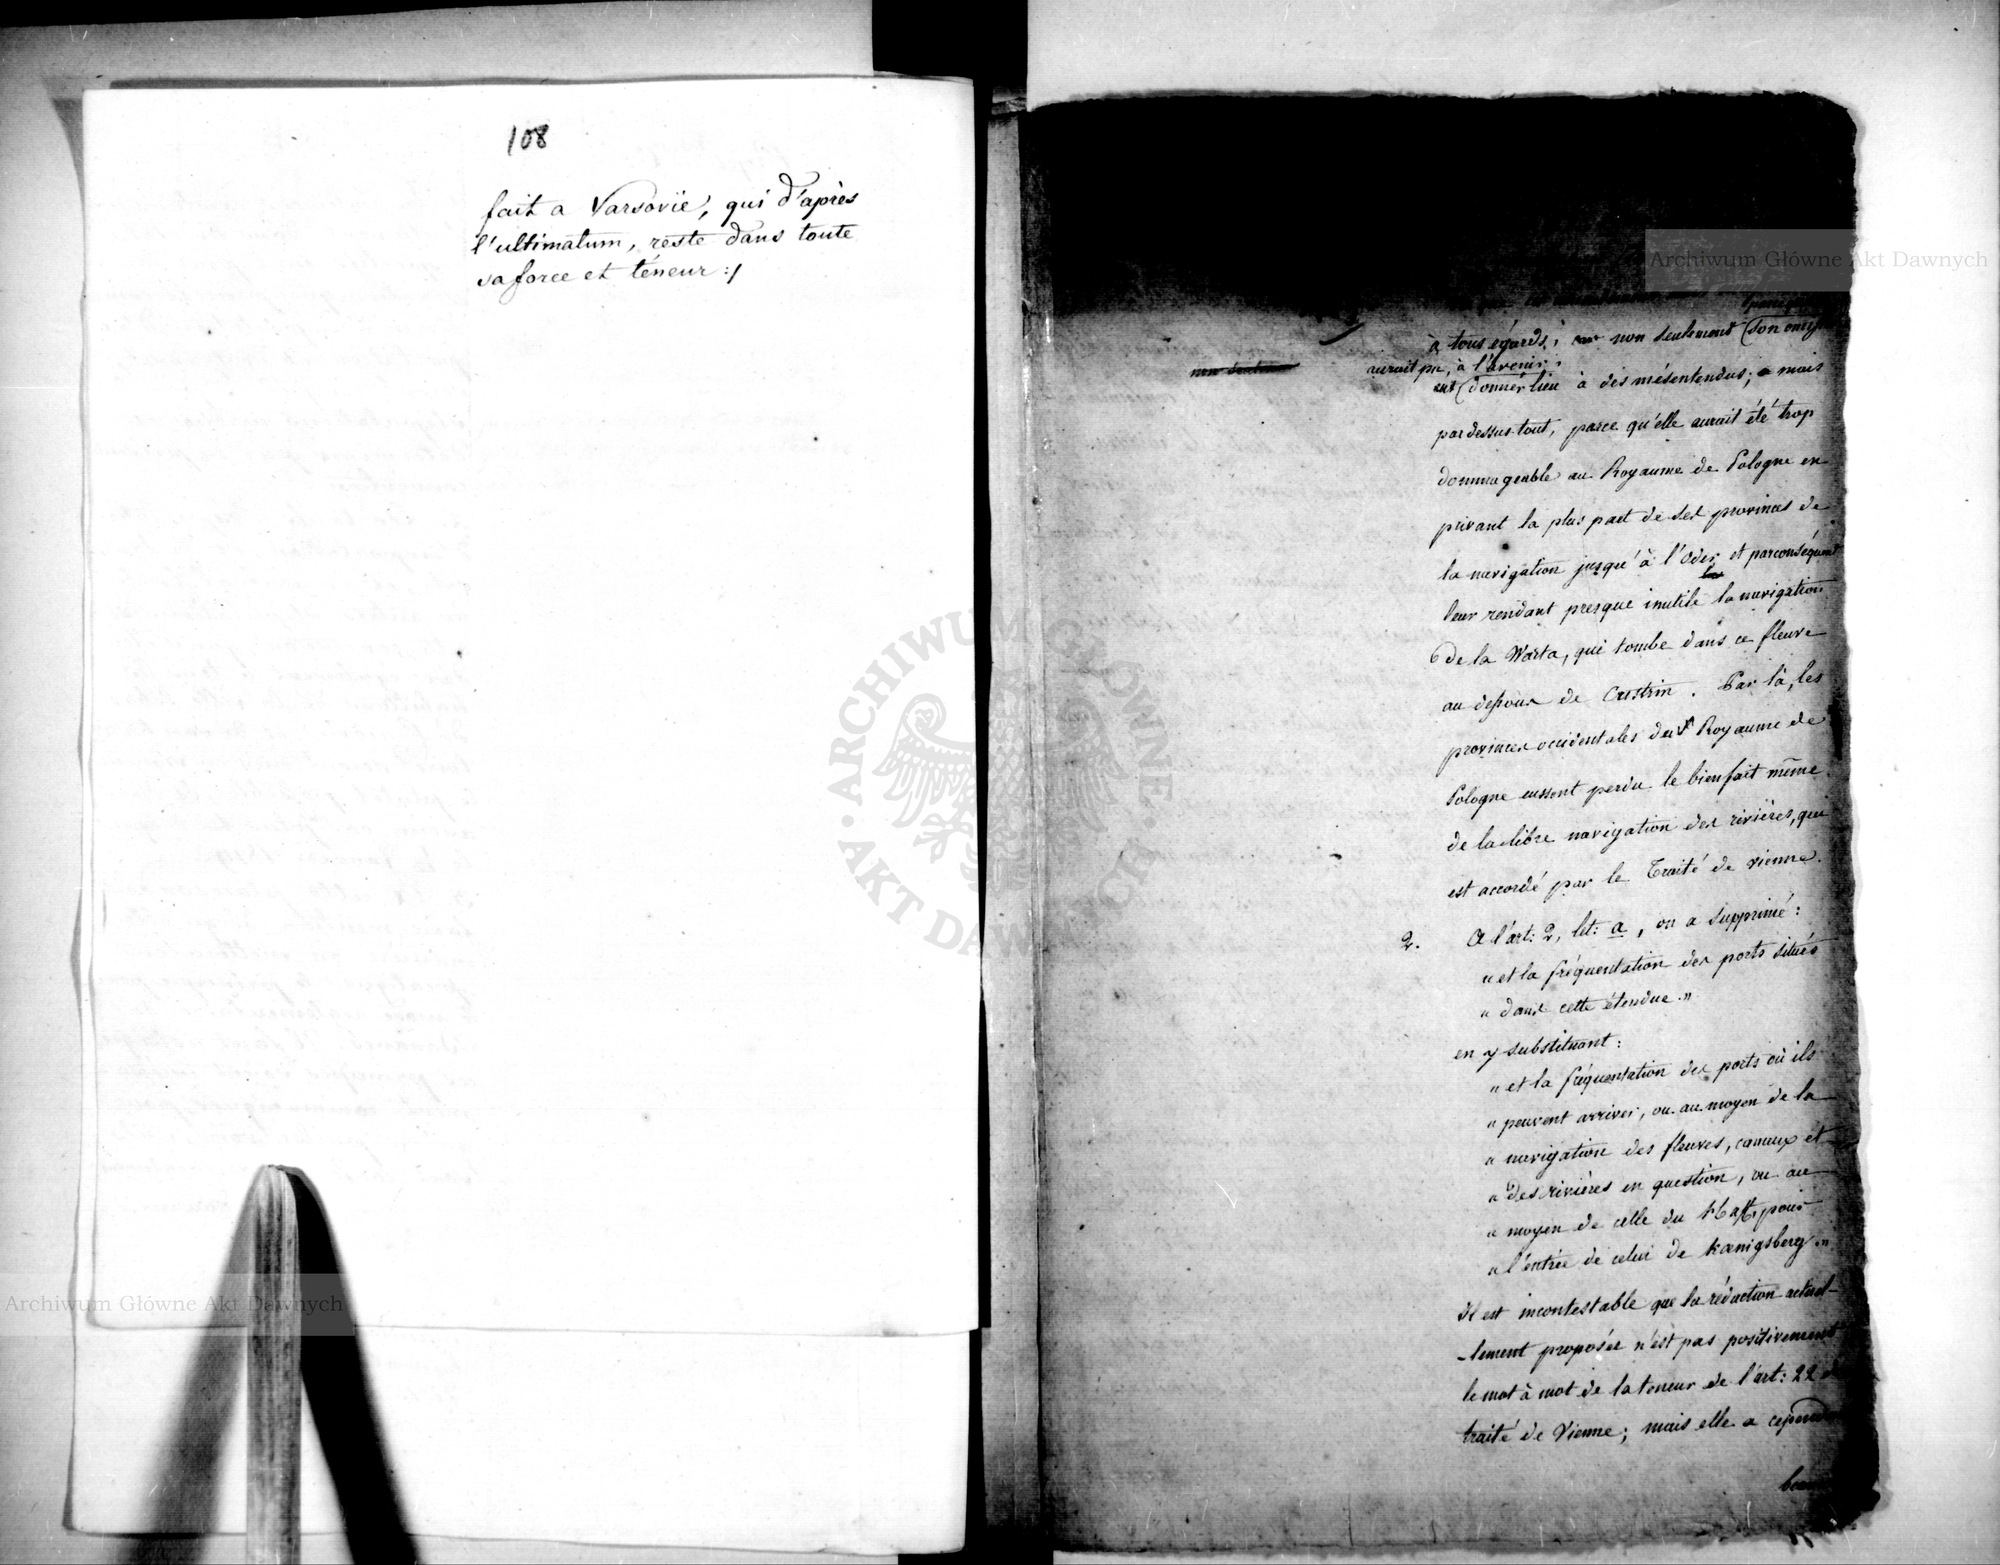 108
fait a Varsovie, qui d'après
l'ultimatum, reste dans toute
sa force et téneur :/
à tous égards; car non seulement son
aurait pu, à l'avenir,
eut donner lieu à des mésentendus; mais
par dessus-tout, parce qu'elle aurait été trop
dommageable au Royaume de Pologne en
privant la plus part de ses provinces de
la navigation jusqu'à l'Oder, et parconséquent
leur rendant presque inutile la navigation
de la Warta, qui tombe dans ce fleuve
au dessous de Custrin. Par là, les
provinces occidentales du Royaume de
Pologne eussent perdu le bienfait même
de la libre navigation des rivières, qui
est accordé par le Traité de Vienne.
2. A l'art: 2, let: a, on a supprimé:
"et la fréquentation des ports situés
"dans cette étendue."
en y substituant:
"et la fréquentation des ports où ils
"peuvent arriver, ou au moyen de la
"navigation des fleuves, canaux et
"des rivières en question, ou au
"moyen de celle du Haff, pour
"l'entrée de celui de Kœnigsberg."
Il est incontestable que la rédaction actuel-
-lement proposée n'est pas positivement
le mot à mot de la teneur de l'art: 22 du
traité de Vienne; mais elle a cependant
Archiwum Główne Akt Dawnych
Archiwum Główne Akt Dawnych
ARCHIWUM GŁÓWNE · AKT DAWNYCH ·